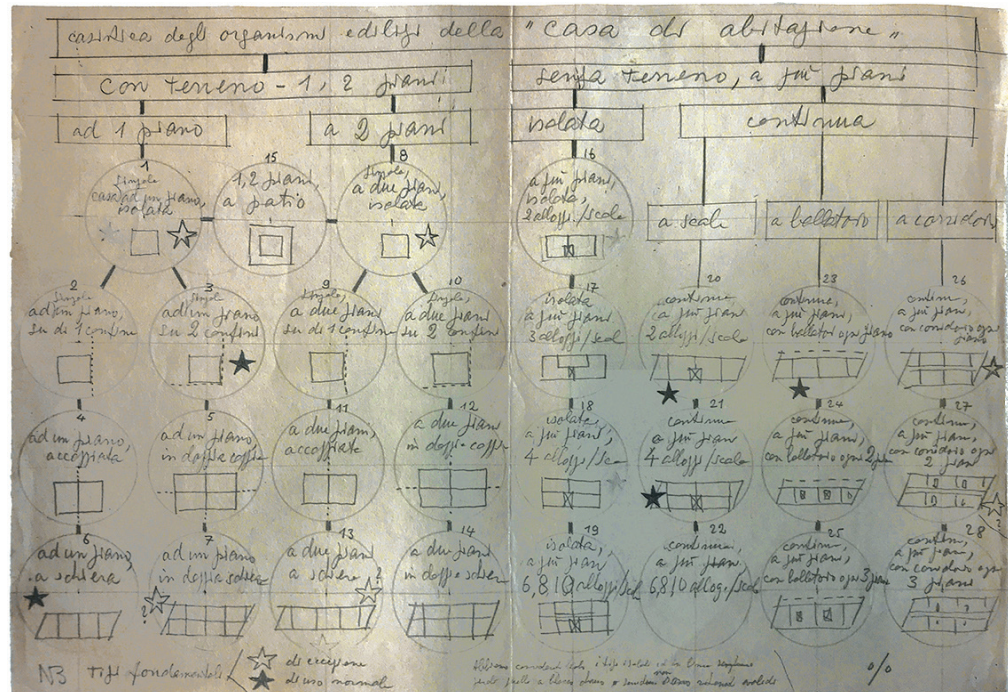 casistica degli organismi edilizi della "casa di abitazione"
con terreno - 1, 2 piani
senza terreno, a più piani
ad 1 piano
a 2 piani
isolata
continua
a scale
a ballatoio
a corridoio
1
Singola
casa ad un piano,
isolata
15
1,2 piani,
a patio
8
Singola,
a due piani,
isolata
16
a più piani,
isolata,
2 alloggi/scala
2
Singola
ad un piano,
su di 1 confine
3
Singol
ad un piano
su 2 confini
9
Singola,
a due piani
su di 1 confine
10
Singola,
a due piani
su 2 confini
17
isolata
a più piani
3 alloggi/scal
20
continua
a più piani
2 alloggi/scala
23
continua,
a più piani,
con ballatoio ogni piano
26
continu,
a più piani,
con corridoio ogni
piano
4
ad un piano,
accoppiata
5
ad un piano,
in doppia coppia
11
a due piani,
accoppiate
12
a due piani
in doppia coppia
18
isolata,
a più piani,
4 alloggi/sca
21
continua
a più piani
4 alloggi/scala
24
continua,
a più piani,
con ballatoio ogni 2 pia
27
continu,
a più piani,
con corridoio ogni
2 piani
6
ad un piano,
a schiera
7
ad un piano
in doppia schiera
2
13
a due piani
a schiera
2
14
a due piani
in doppia schiera
19
isolata,
a più piani
6,8,10 alloggi/scal
22
continua,
a più piani,
6,8,10 allog./scala
25
continua,
a più piani,
con ballatoio ogni 3 piani
28
contin,
a più piani,
con corridoio ogni
3 piani
NB tipi fondamentali
di eccezione
di uso normale
o/o